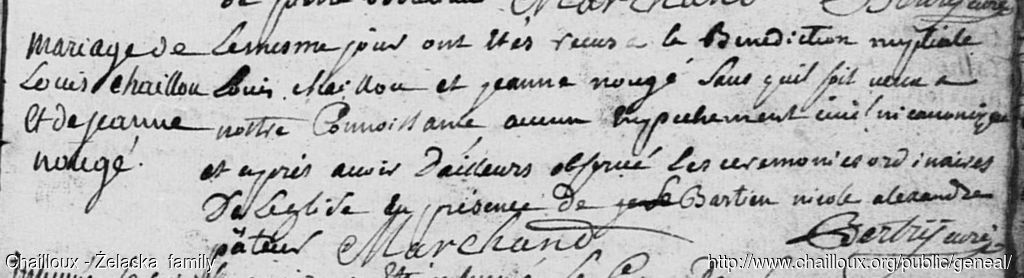 Marchand
mariage de
Louis chaillou
Et de jeanne
nougé.
Le mesme jour ont Etés recus a la Benediction nuptiale
Louis Chaillou et jeanne nougé sans quil soit venu a
nottre Connoissance aucun Empechement civil ni canonique
et apres avoir d'ailleurs observé les ceremonies ordinaires
De Leglise En présence de Bastien nicole alexandre
Marchand
Chailloux - Żelaska family
http://www.chailloux.org/public/geneal/